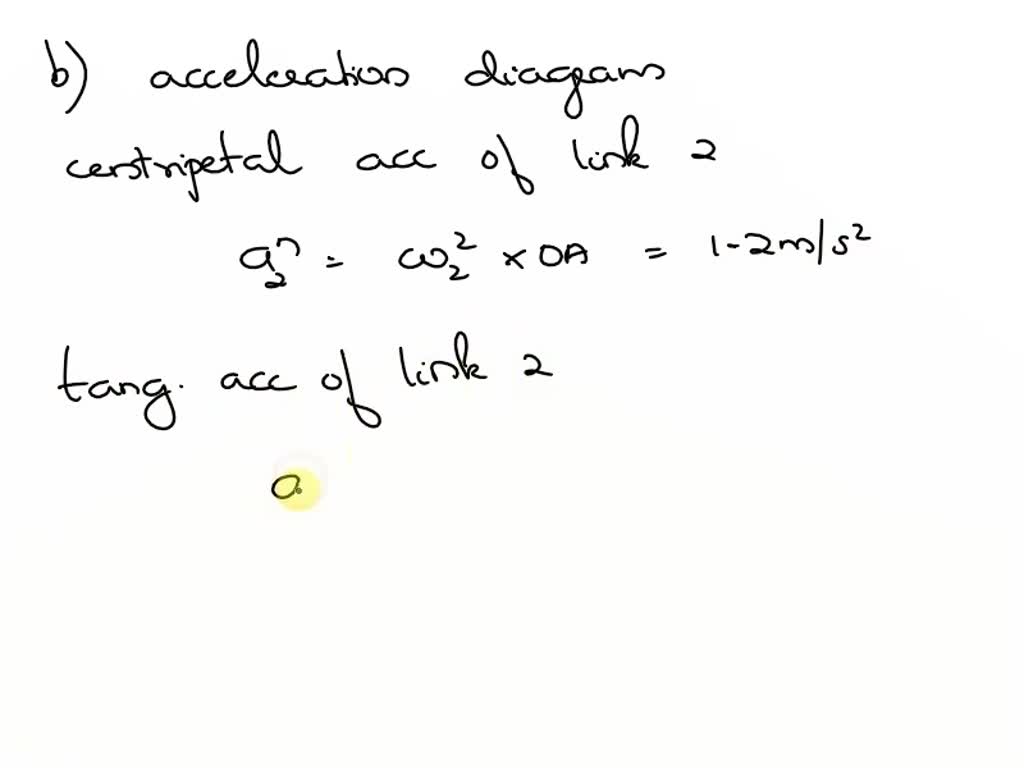 b) acceleration diagram
centripetal acc of link 2
a₂ⁿ = ω₂² × OA = 1-2m/s²
tang. acc of link 2
a